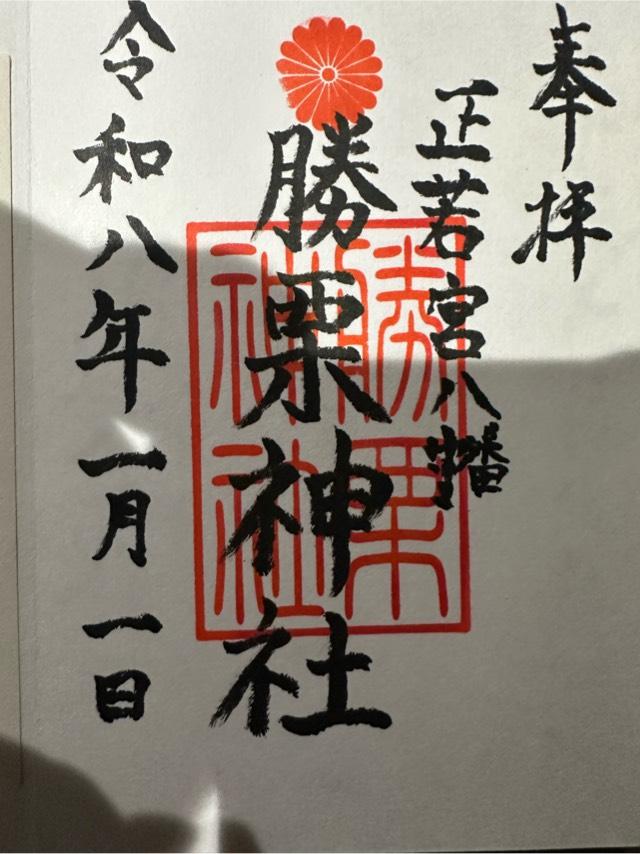 奉拝
正若宮八幡
勝栗神社
勝栗神社
令和八年一月一日